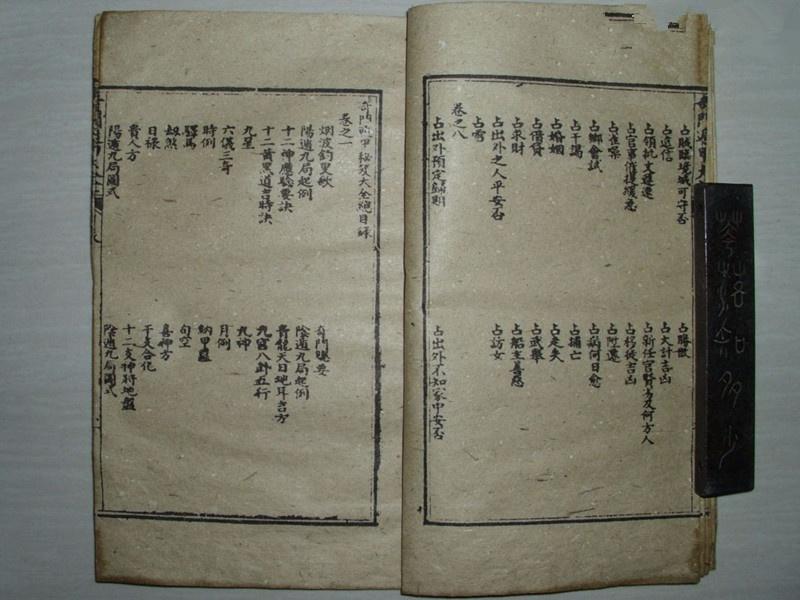 占賊臨境城可守否 占勝敗
占遠信 占大計吉凶
占領批文遲速 占新任官賢否及何方人
占官事催提緩急 占移徙吉凶
占 案 占陞遷
占鄉會試 占病何日愈
占干謁 占捕亡
占婚姻 占走失
占借貸 占武舉
占求財 占船主善惡
占出外之人平安否 占訪女
占雪
卷之八
占出外預定歸期 占出外不知家中安否
奇門遁甲秘笈大全總目錄
卷之一
烟波釣叟歌 奇門 要
陽遁九局起例 陰遁九局起例
十二神應驗要訣 青龍天日地耳吉方
十二黃黑道吉時訣 九宮八卦五行
九星 九神
六儀三奇 月例
時例 納甲
驛馬 旬空
劫煞 喜神方
日祿 干支合化
貴人方 十二支神將地盤
陽遁九局圖式 陰遁九局圖式
花落知多少